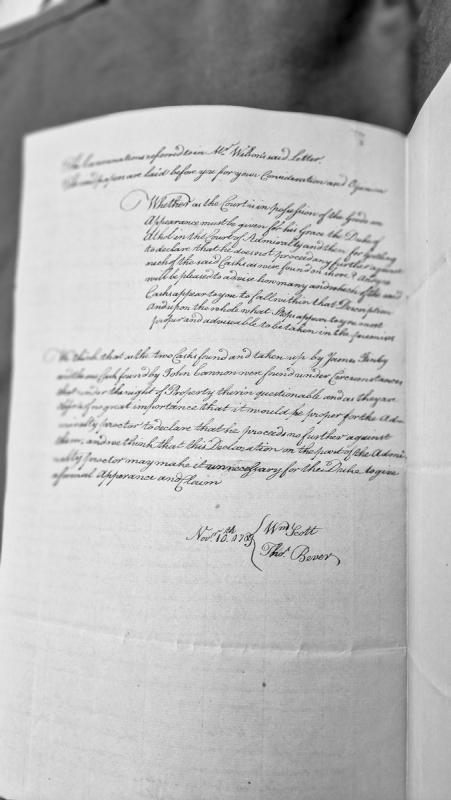 The Examinations referred to in Mr. Wilson's said Letter.
The said papers are laid before you for your Consideration and Opinion
Whether as the Court is in possession of the Goods an
Appearance must be given for his Grace the Duke of
Athol in the Court of Admiralty and them for getting
to declare that he does not proceed any further against
such of the said Casks as were found on shore & if you
will be pleased to advise how many and which of the said
Casks appear to you to fall within that Description
And upon the whole what Steps appear to you most
proper and adviseable to be taken in the premises
We think that as the two Casks found and taken up by James
and the one Cask found by John Cannon were found under Circumstances
that render the right of Property therein questionable and as they are
objects of no great importance that it would be proper for the Ad-
miralty proctor to declare that he proceeds no further against
them, and we think that this Declaration on the part of the Admi-
ralty proctor may make it unnecessary for the Duke to give
a formal Apperance and Claim
Novr. 10th. 1785 Wm. Scott
Thos. Bever